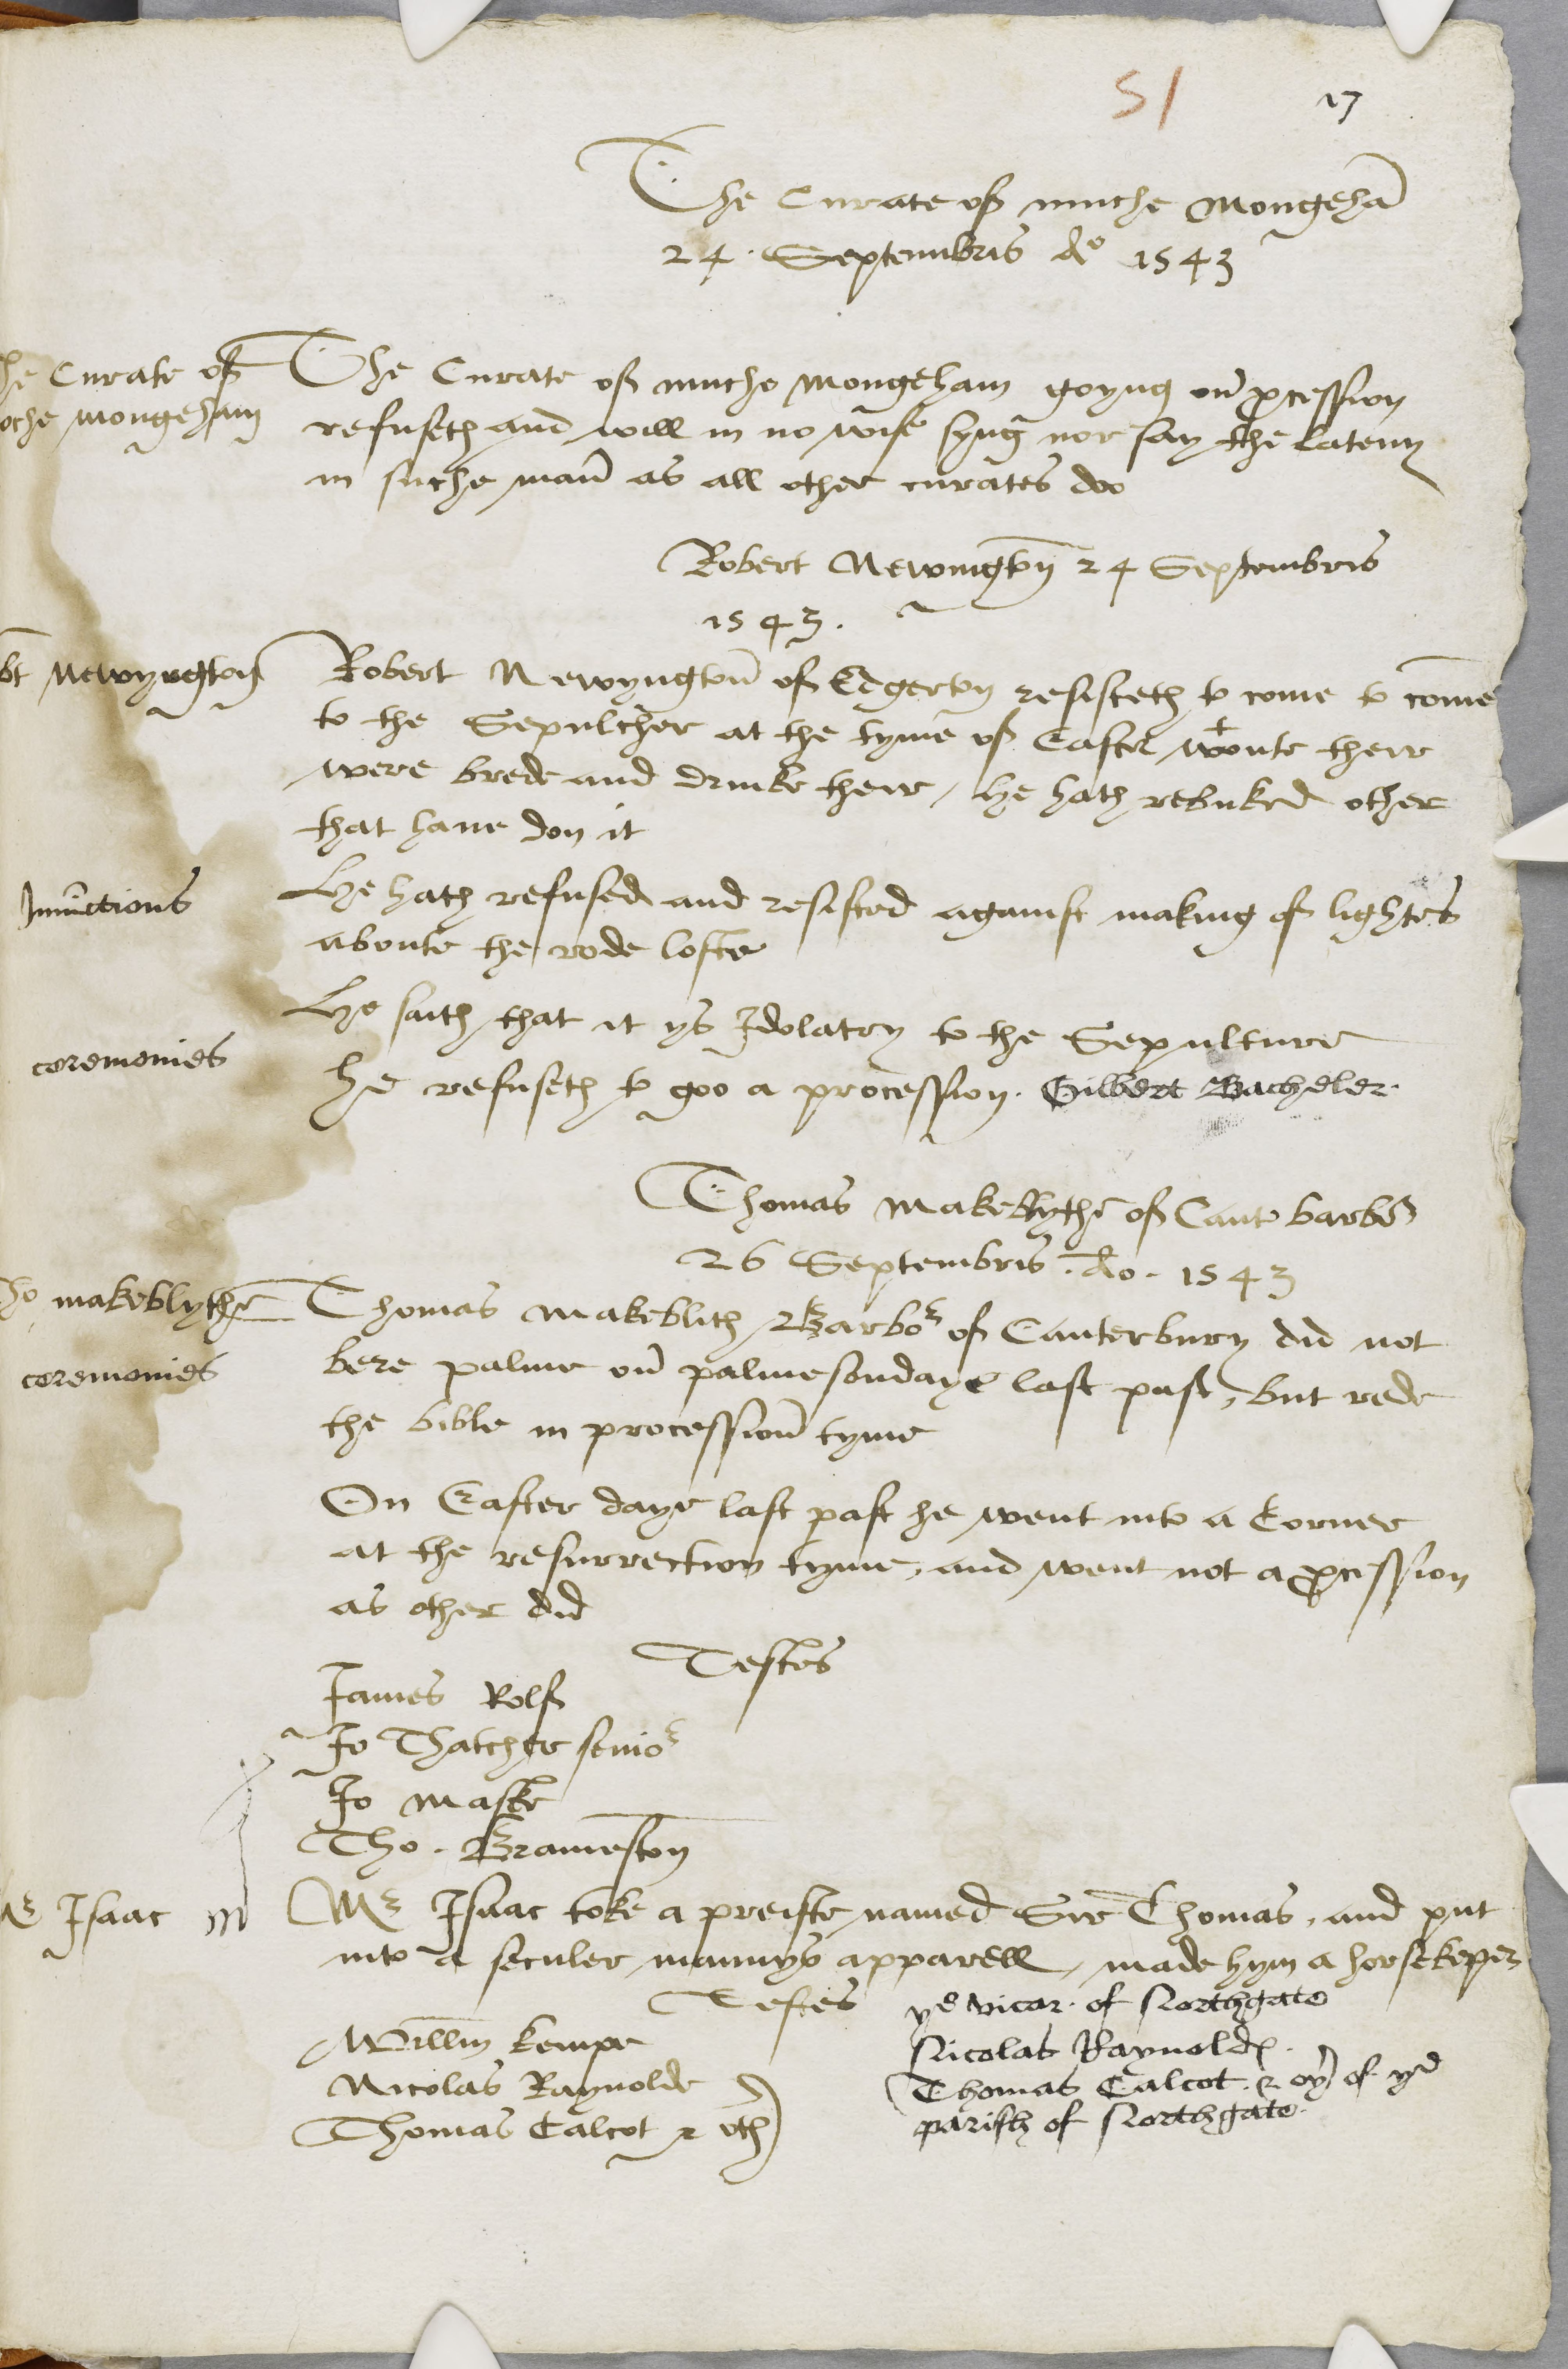 51 17
The Curate of muche Mongehā
24. Septembris Ao 1543
The Curate of
oche Mongeham
The Curate of muche Mongeham goyng on pcession
refuseth and will in no wise syng nor say the lateny
in suche maner as all other curates doo
Robert Newington 24 Septembris
1543.
bt Newyngton
Robert Newyngton of Egerton resisteth to come to come
to the Sepulcher at the tyme of Easter woute their
were brede and drinke their, he hath rebuked other
that haue don it
Iniuctions
He hath refused and resisted against making of lightes
aboute the rode lofte
He saith that it ys Idolatry to the Sepulture
ceremonies
he refuseth to goo a procession. Gilbert Bacheler.
Thomas Makeblythe of Cant barbor
26 Septembris. Ao. 1543
ho makeblythe
Thomas Makeblith Barbor of Canterbury did not
ceremonies
bere palme on palmesondaye last past, but rede
the bible in procession tyme
On Easter daye last past he went into a Corner
at the resurrection tyme, and went not a pcession
as other did
Testes
James Rolf
Jo Thatcher senior
Jo Maske
Tho. Brameston
Mr Isaac
Mr Isaac toke a preiste named Sir Thomas, and put
into a seculer mannys apparell, made hym a horsekeper
Testes
Willm Kempe
Nicolas Raynolde
Thomas Calcot & oth
ye vicar. of Northgate
Nicolas Raynolds.
Thomas Calcot. & oyr of ye
parish of Northgate.